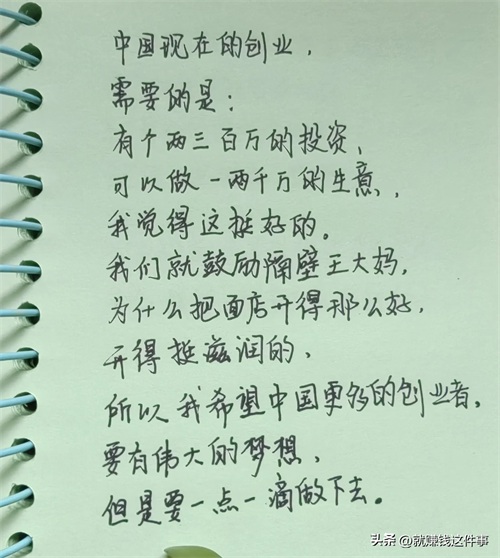 中国现在的创业，
需要的是：
有个两三百万的投资、
可以做一两千万的生意，
我觉得这挺好的。
我们就鼓励隔壁王大妈，
为什么把面店开得那么好，
开得挺滋润的、
所以我希望中国更多的创业者，
要有伟大的梦想、
但是要一点一滴做下去。
头条 @就赚钱这件事